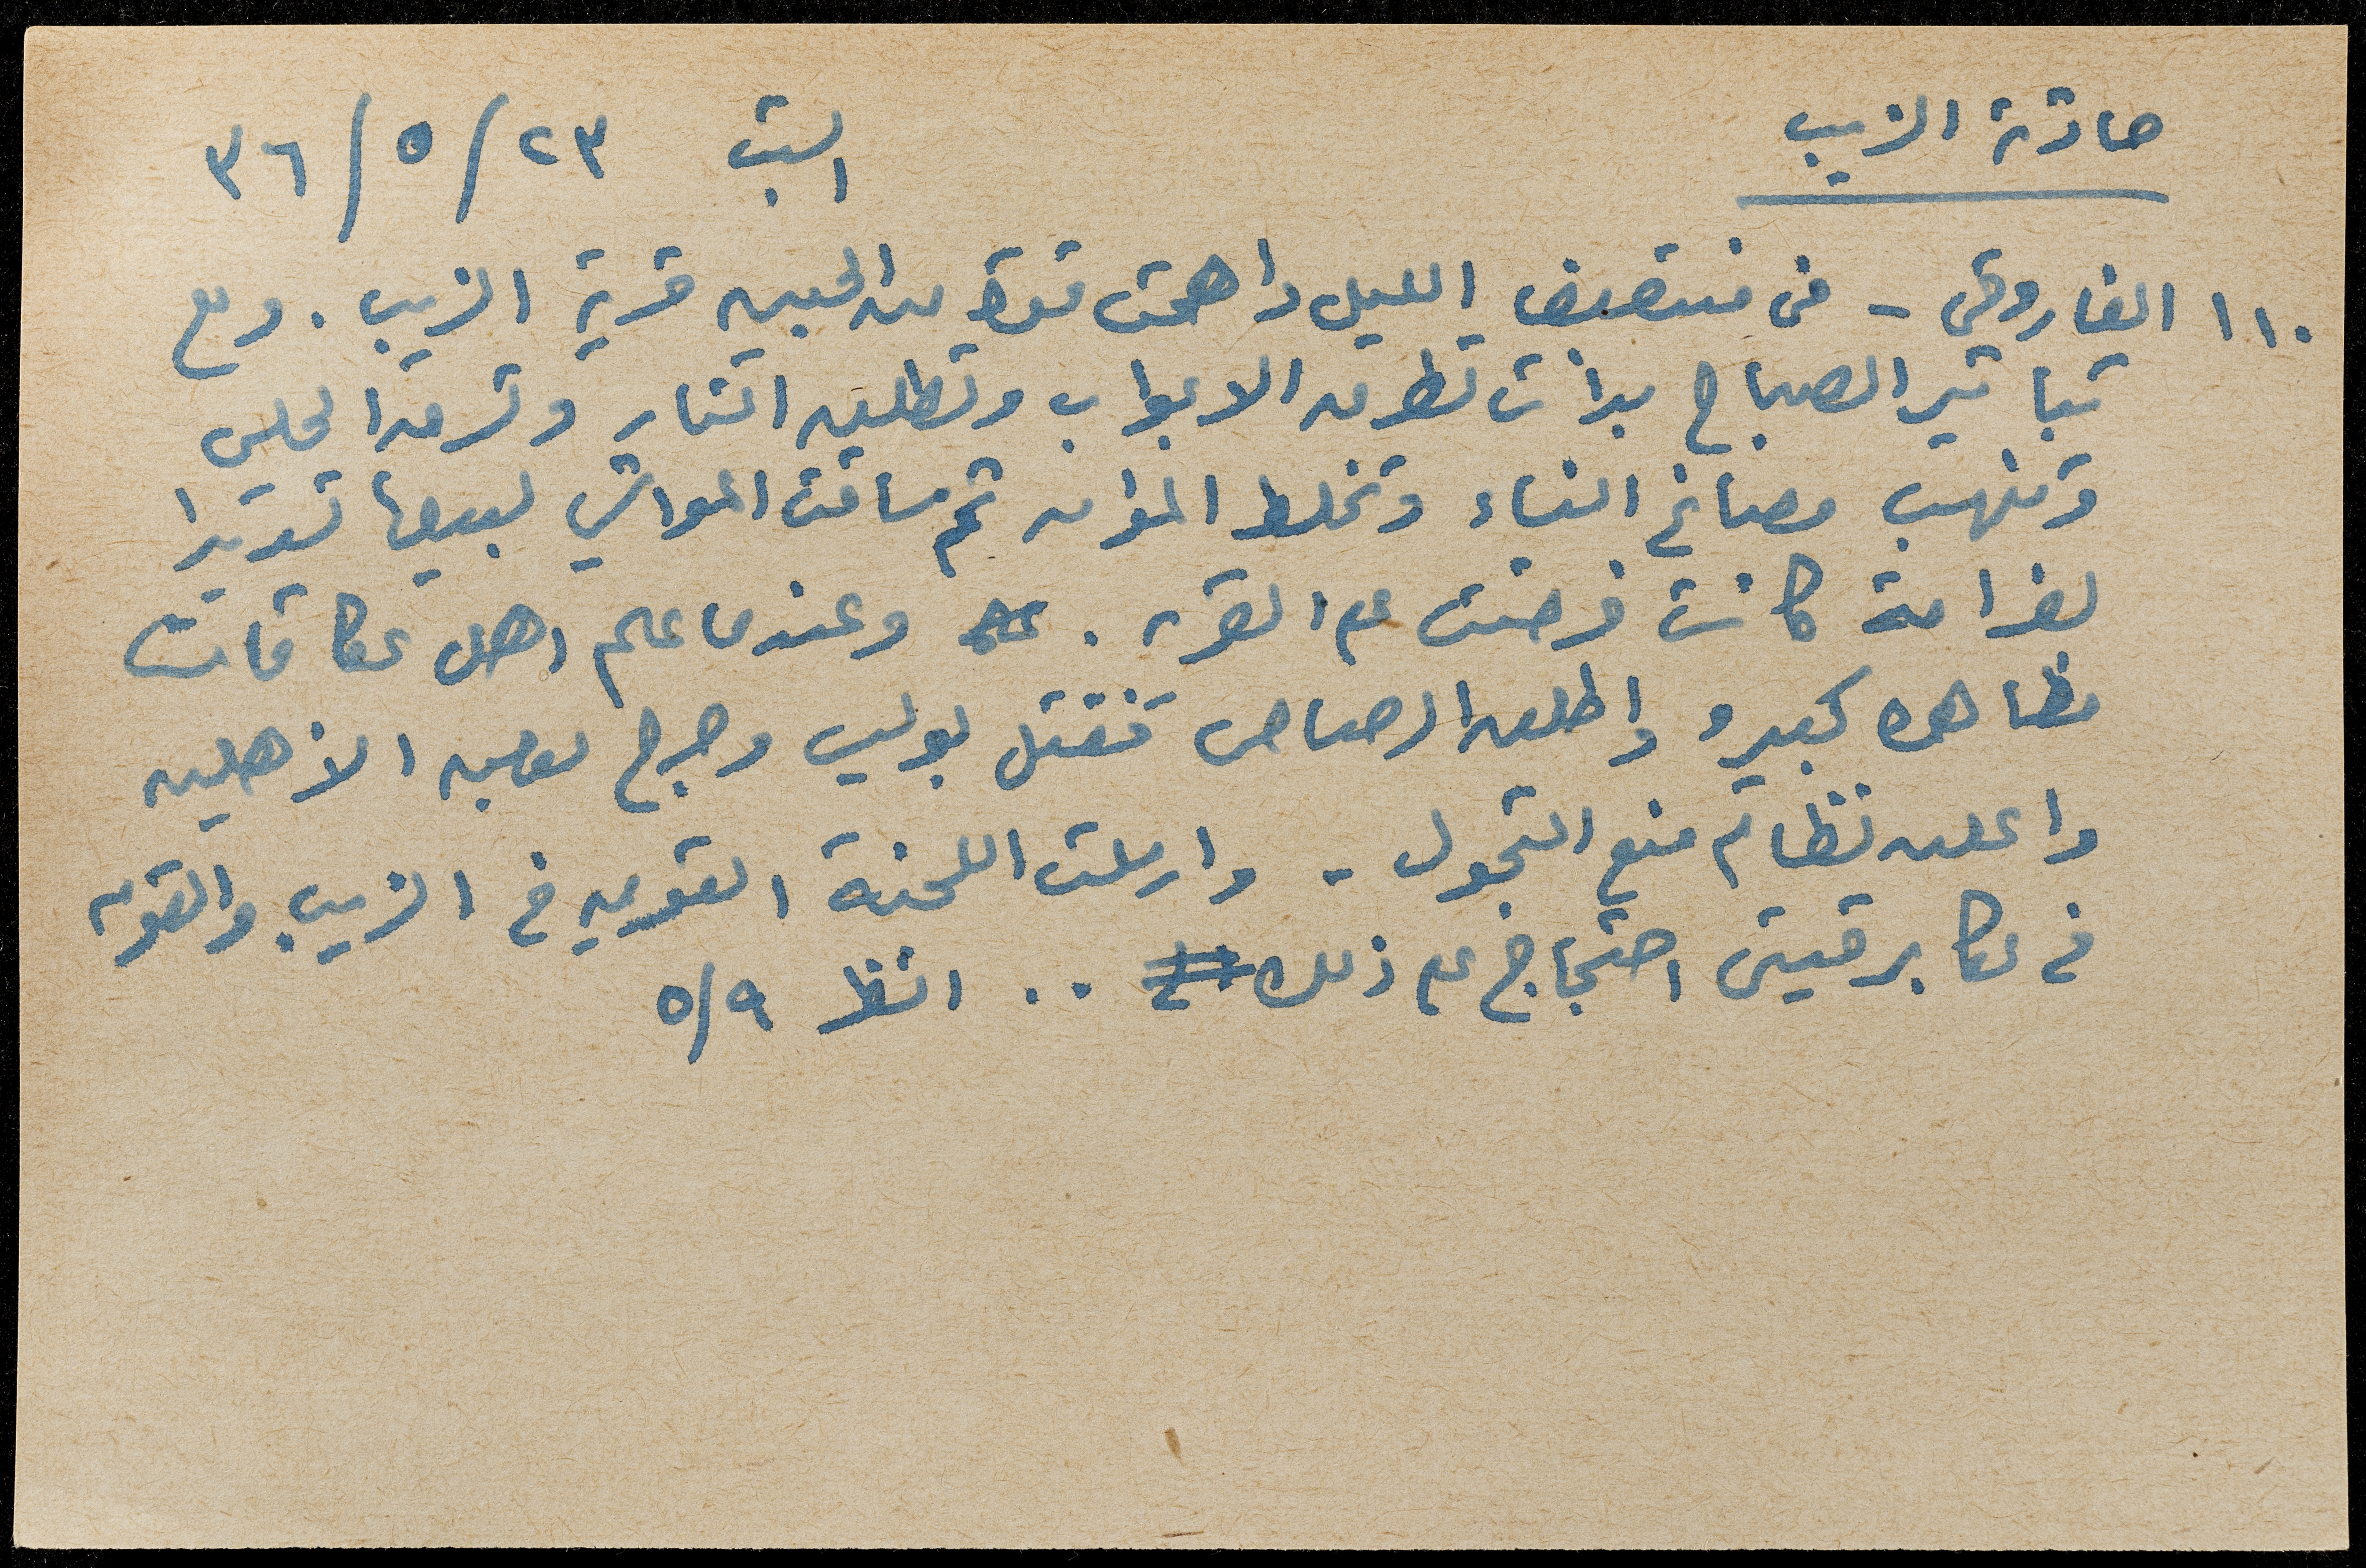 حادثة الزيب السبت ٢٣/٥/٣٦
١١٠ الفاروقي - في منتصف الليل داهمت قوة من الجيش قرية الزيب . ومع
تباشير الصباح بدأت تطرق الابواب وتطلق النار وتسرق الحلي
وتنهب مصاغ النساء وتخلط المؤن ثم ساقت المواشي لبيعها تسديدا
لغرامة كانت فرضت على القرية . وعندما علم اهل عكا قامت
مظاهره كبيره واطلق الرصاص فقتل بوليس وجرح بعض الأهلين
واعلن نظام منع التجول - وارسلت اللجنة القوميه في الزيب والقوميه
في عكا برقيتي احتجاج على ذلك .. انظر ٥/٩